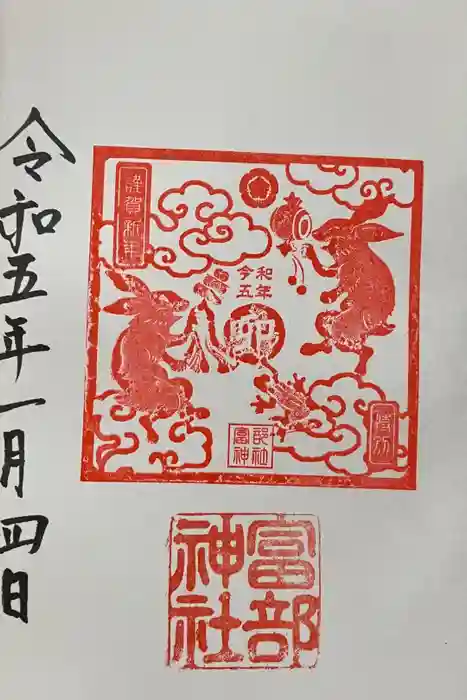 令和五年一月四日
謹賀新年
令和
五年
卯
特別
富部神社
富部神社